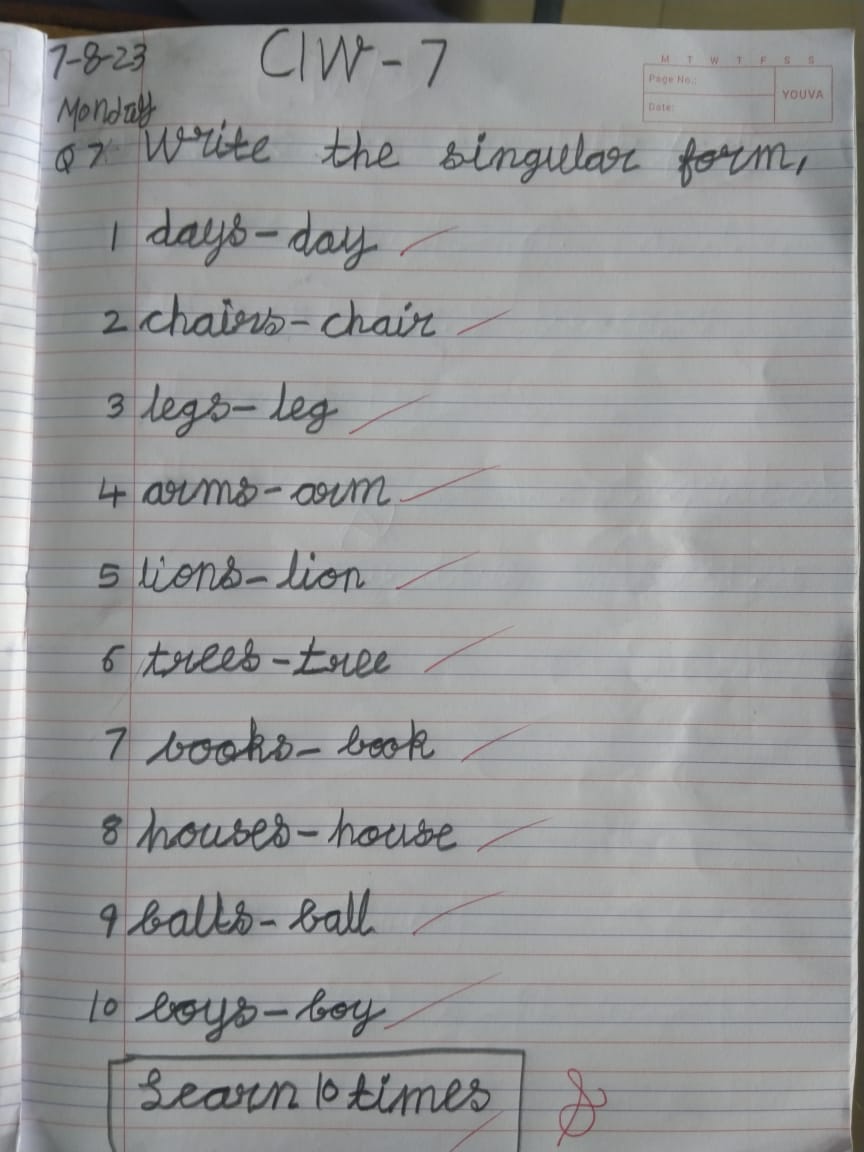 7-8-23 C/W-7
Monday
M T W T F S S
Page No.:
YOUVA
Date:
Q7 Write the singular form,
1 days-day
2 chairs-chair
3 legs-leg
4 arms-arm
5 lions-lion
6 trees-tree
7 books-book
8 houses-house
9 balls-ball
10 boys-boy
Learn 10 times